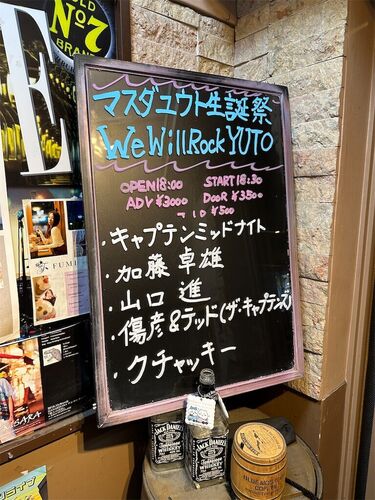 OLD
No.7
BRAND
E
マスダユウト生誕祭
We Will Rock YUTO
OPEN18:00 START18:30
ADV¥3000 DOOR¥3500
+1D ¥500
・キャプテンミッドナイト
・加藤 卓雄
・山口 進
・傷彦&テッド(ザ・キャプテンズ)
・クチャッキー
FUMI
SARA
JACK DANIEL'S
JACK DANIEL'S
BLUE MOUNTAIN
COFFEE